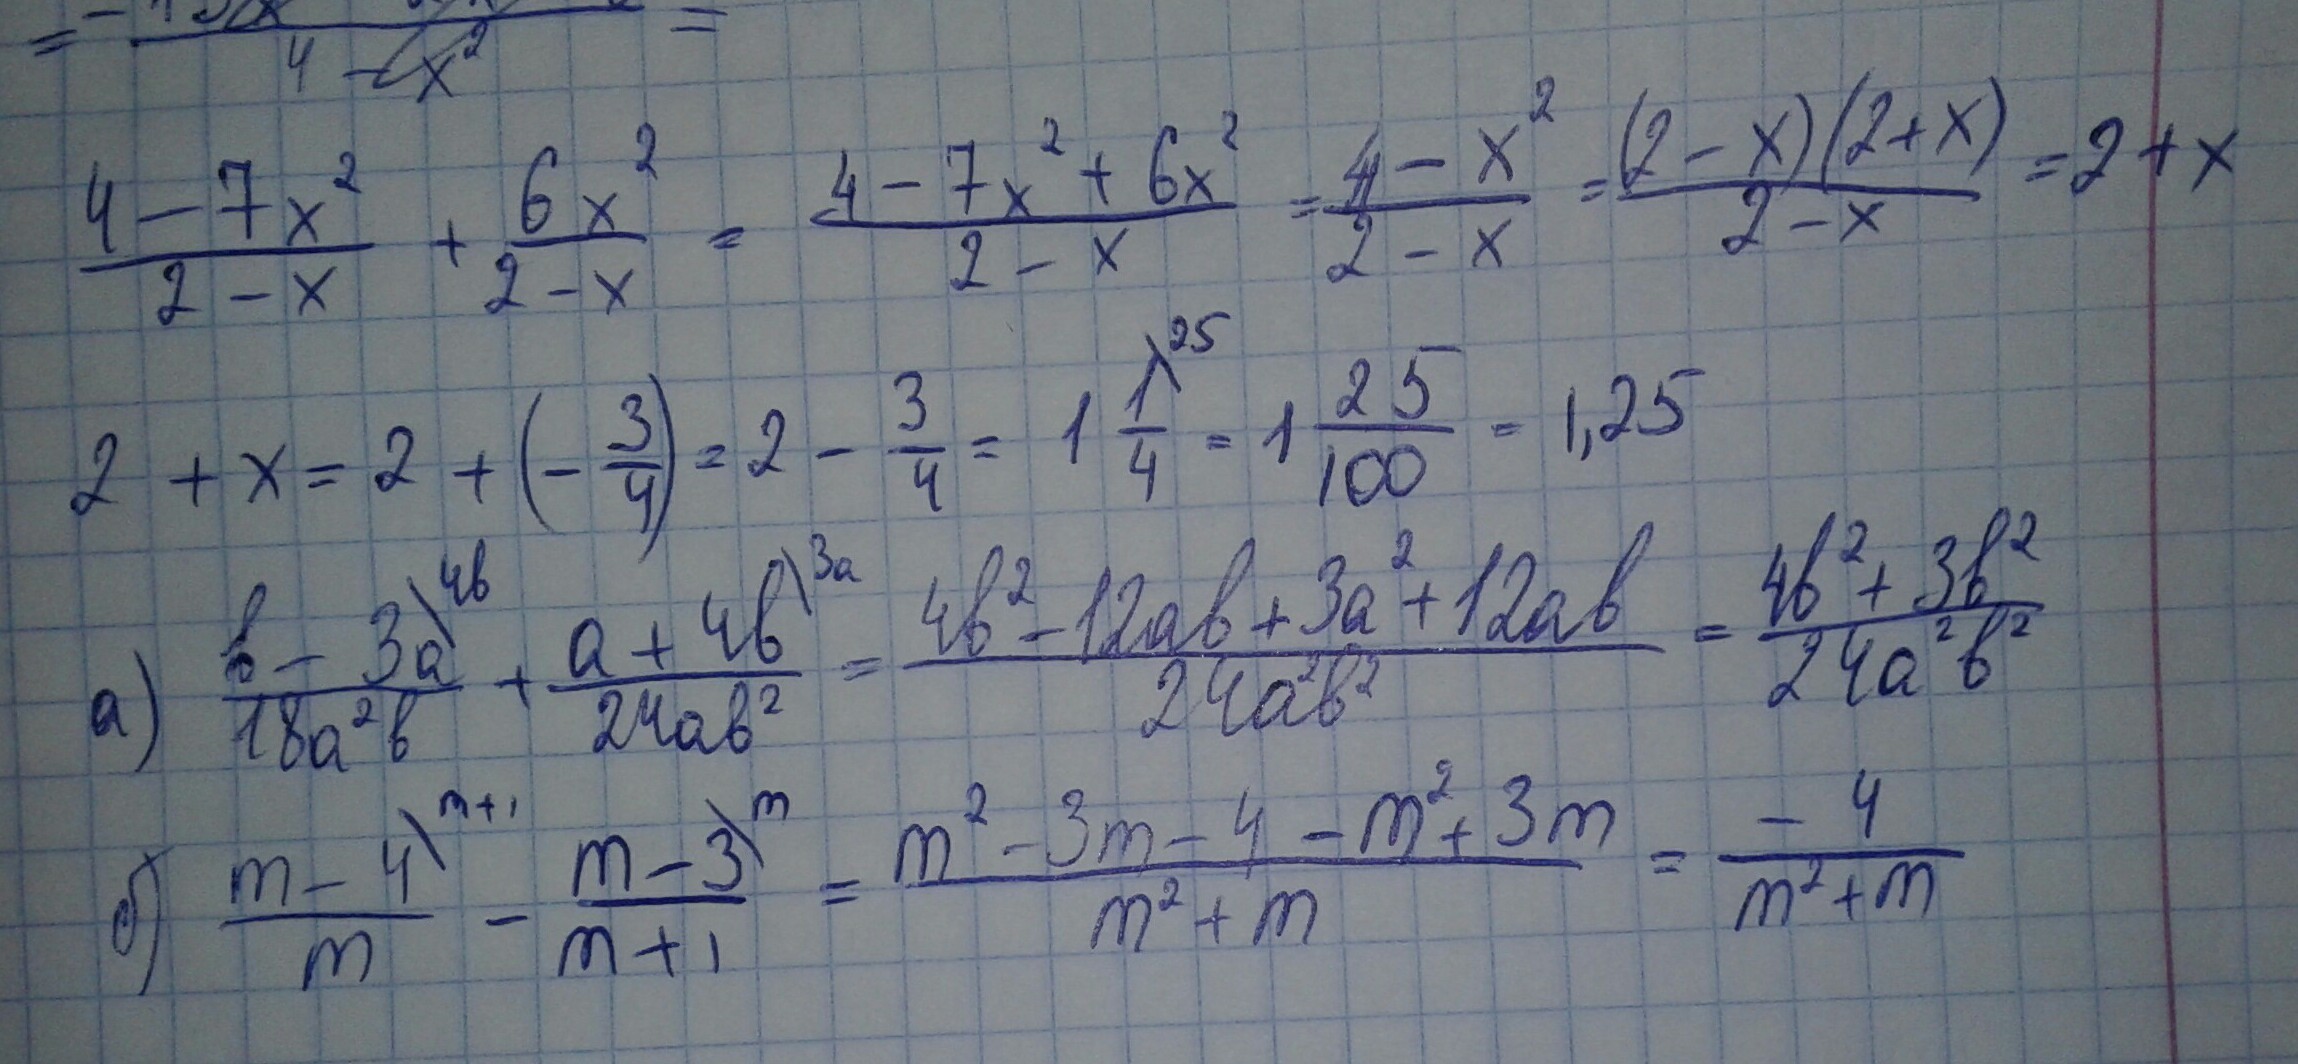 4 - x² =
(4 - 7x²)/(2 - x) + 6x²/(2 - x) = (4 - 7x² + 6x²)/(2 - x) = (4 - x²)/(2 - x) = (2 - x)(2 + x)/(2 - x) = 2 + x
2 + x = 2 + (- 3/4) = 2 - 3/4 = 1 1\²⁵/4 = 1 25/100 = 1,25
а) (b - 3a\⁴ᵇ)/(18a²b) + (a + 4b\³ᵃ)/(24ab²) = (4b² - 12ab + 3a² + 12ab)/(24a²b²) = (4b² + 3b²)/(24a²b²)
б) (m - 4\ᵐ⁺¹)/m - (m - 3\ᵐ)/(m + 1) = (m² - 3m - 4 - m² + 3m)/(m² + m) = (- 4)/(m² + m)